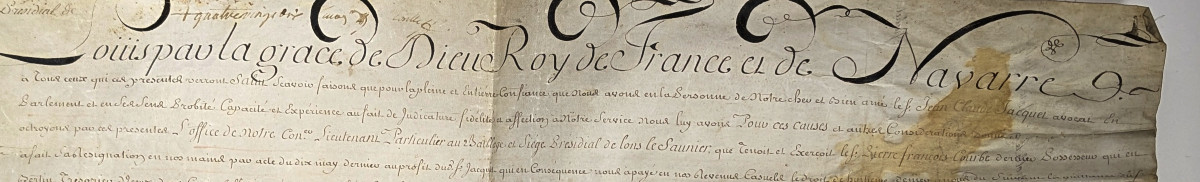 Presidial de
quatrevingtdix may
Loüis par la grace de Dieu Roy de France et de Navarre
à Tous ceux qui ces presentes verront Salut Scavoir faisons que pour la pleine et Entiere Confiance que Nous avons en la Personne de Notre cher et bien amé le Sr. Jean Claude Jacquet avocat En
Parlement et en ses sens Probité Capacité et Expérience au fait de Judicature fidelité et affection à Notre Service Nous luy avons Pour ces causes et autres Considerations donné et
octroyons par ces presentes L'office de Notre Conr. Lieutenant Particulier au Bailliage et Siège Presidial de lons le Saunier, que Tenoit et Exerçoit le Sr. Pierre françois Courbe dernier Possesseur qui en
a fait Sa resignation en nos mains par acte du dix may dernier au profit dud. Sr. Jacquet qui en Consequence nous a payé en nos Revenus Casuels le droit de